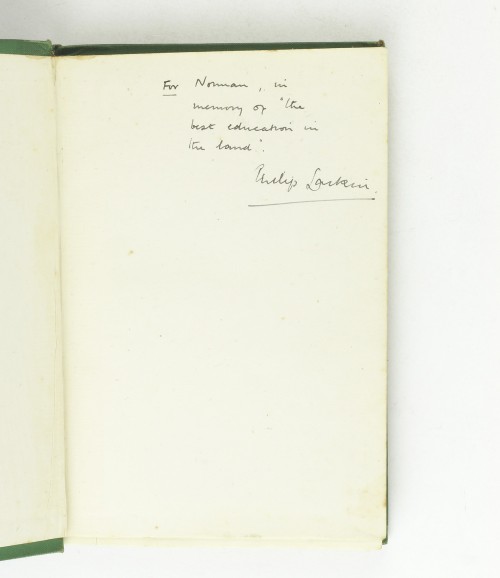 For Norman, in
memory of "the
best education in
the land".
Philip Larkin.